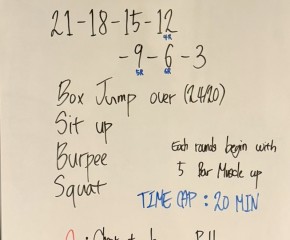 21-18-15-12
4R
-9-6-3
5R 6R
Box Jump over (24/20)
Sit up
Burpee
Squat
Each rounds begin with
5 Bar Muscle up
TIME CAP : 20 MIN